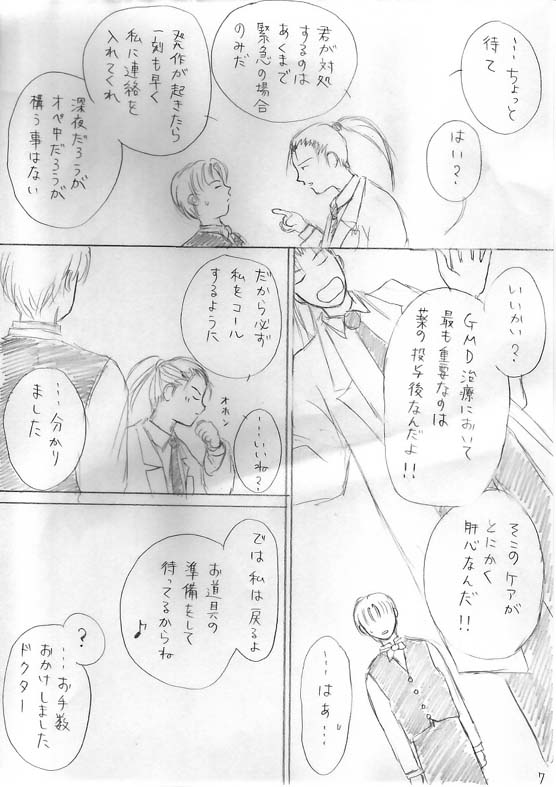 …ちょっと
待て
はい?
君が対処
するのは
あくまで
緊急の場合
のみだ
発作が起きたら
一刻も早く
私に連絡を
入れてくれ
深夜だろうが
オペ中だろうが
構う事はない
いいかい?
GMD治療において
最も重要なのは
薬の投与後なんだよ!!
そこのケアが
とにかく
肝心なんだ!!
…はぁ…
だから必ず
私をコール
するように
オホン
…いいね?
…分かり
ました
では私は戻るよ
お道具の
準備をして
待ってるからね♪
?
…お手数
おかけしました
ドクター
7